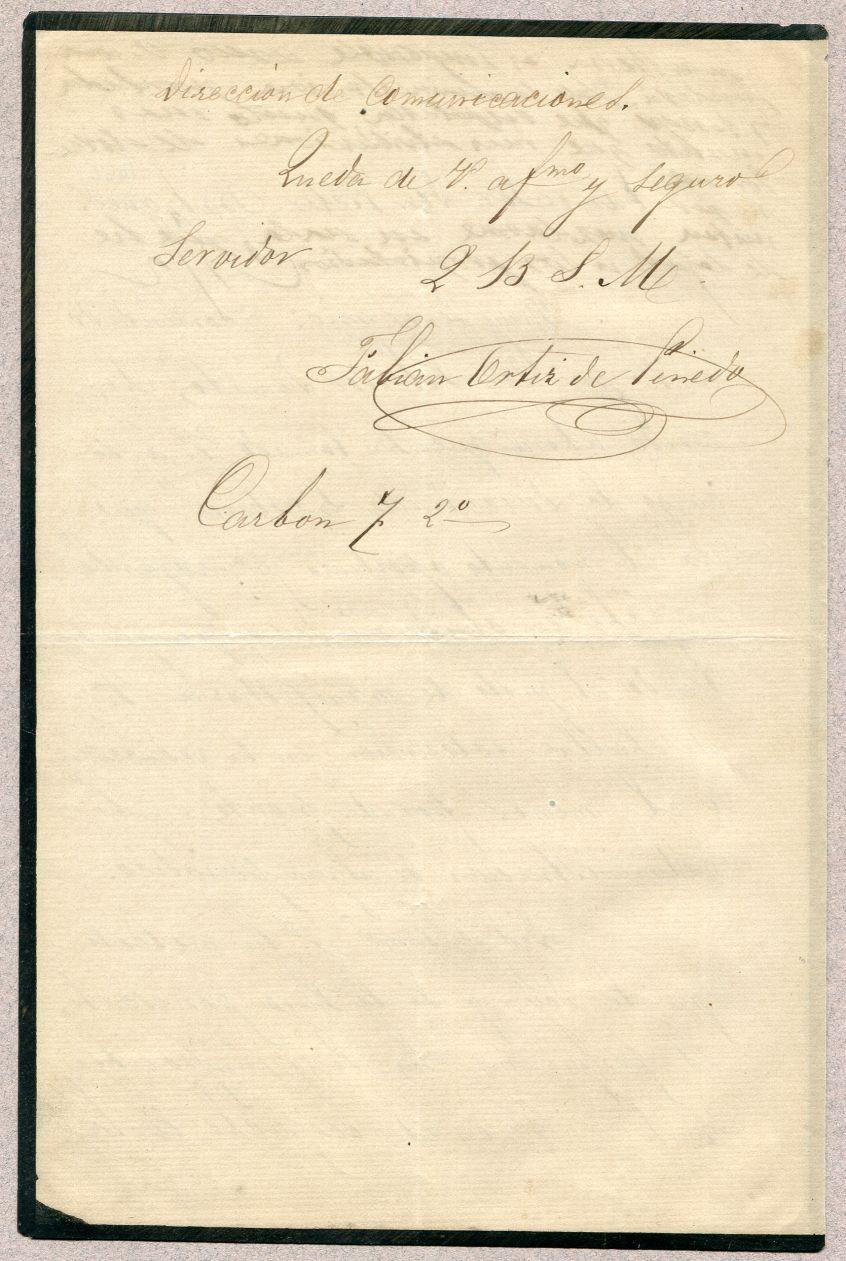 Dirección de Comunicaciones.
Queda de V. afmo y seguro
Servidor Q B S. M.
Fabian Ortiz de Pinedo
Carbon 7 2º